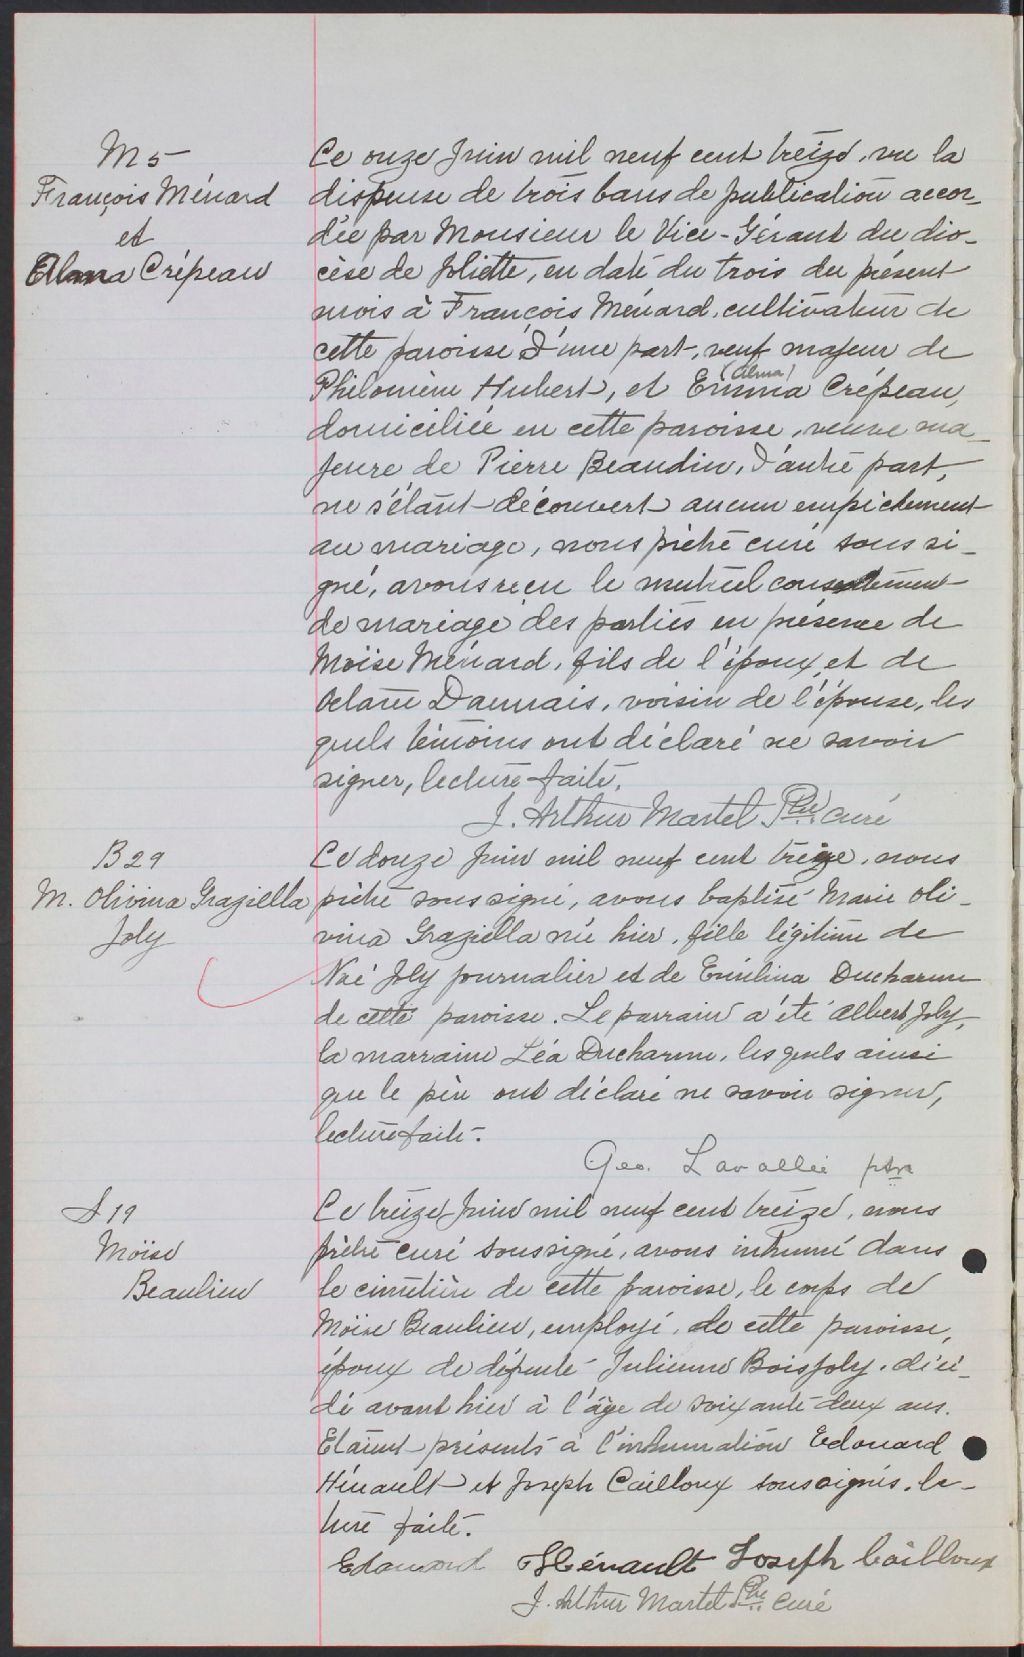 M 5
François Ménard
et
Alma Crépeau
Ce onze Juin mil neuf cent treize, vu la
dispense de trois bans de publication accor-
dée par Monsieur le Vice-Gérant du dio-
cèse de Joliette, en date du trois du présent
mois à François Ménard, cultivateur de
cette paroisse d'une part, veuf majeur de
(Alma)
Philomène Hubert, et Emma Crépeau,
domiciliée en cette paroisse, veuve ma-
jeure de Pierre Beaudin, d'autre part,
ne s'étant découvert aucun empêchement
au mariage, nous prêtre curé sous si-
gné, avons reçu le mutuel consentement
de mariage des parties en présence de
Moïse Ménard, fils de l'époux, et de
Octave Daunais, voisin de l'épouse, les
quels témoins ont déclaré ne savoir
signer, lecture faite.
J. Arthur Martel Ptre curé
B 29
M. Olivina Graziella
Joly
Ce douze Juin mil neuf cent treize, nous
prêtre sous signé, avons baptisé Marie Oli-
vina Graziella née hier, fille légitime de
Noé Joly journalier et de Emélina Ducharme
de cette paroisse. Le parrain a été Albert Joly,
la marraine Léa Ducharme, lesquels ainsi
que le père ont déclaré ne savoir signer,
lecture faite.
Geo. Lavallée ptre
S 19
Moïse
Beaulieu
Ce treize Juin mil neuf cent treize, nous
prêtre curé soussigné, avons inhumé dans
le cimetière de cette paroisse, le corps de
Moïse Beaulieu, employé, de cette paroisse,
époux de défunte Julienne Boisjoly, décé-
dé avant hier à l'âge de soixante deux ans.
Etaient présents à l'inhumation Edouard
Hénault et Joseph Cailloux soussignés, lec-
ture faite.
Edouard Hénault Joseph Cailloux
J. Arthur Martel Ptre curé